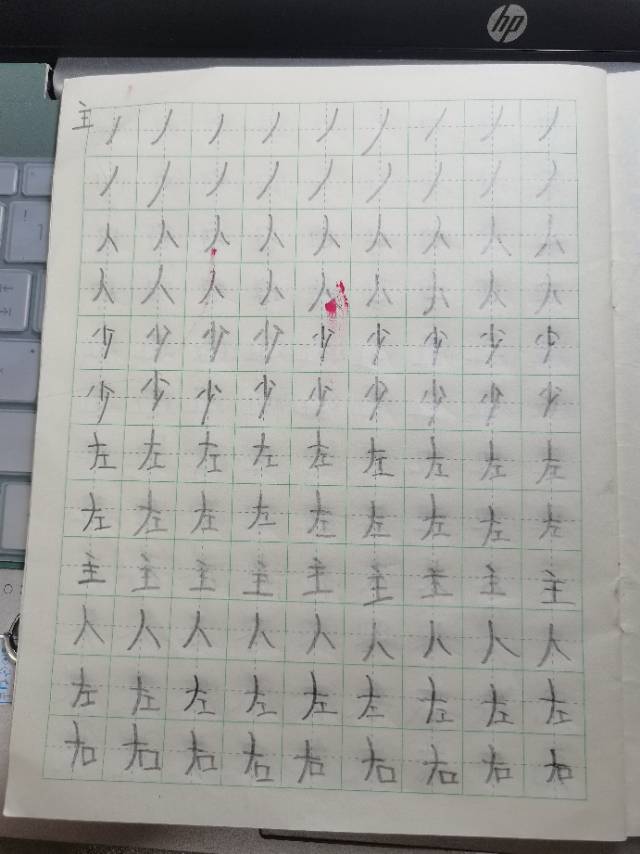 hp
主
丿丿丿丿丿丿丿丿丿
丿丿丿丿丿丿丿丿丿
人人人人人人人人人
人人人人人人人人人
少少少少少少少少少
少少少少少少少少少
左左左左左左左左左
左左左左左左左左左
主主主主主主主主主
人人人人人人人人人
左左左左左左左左左
右右右右右右右右右